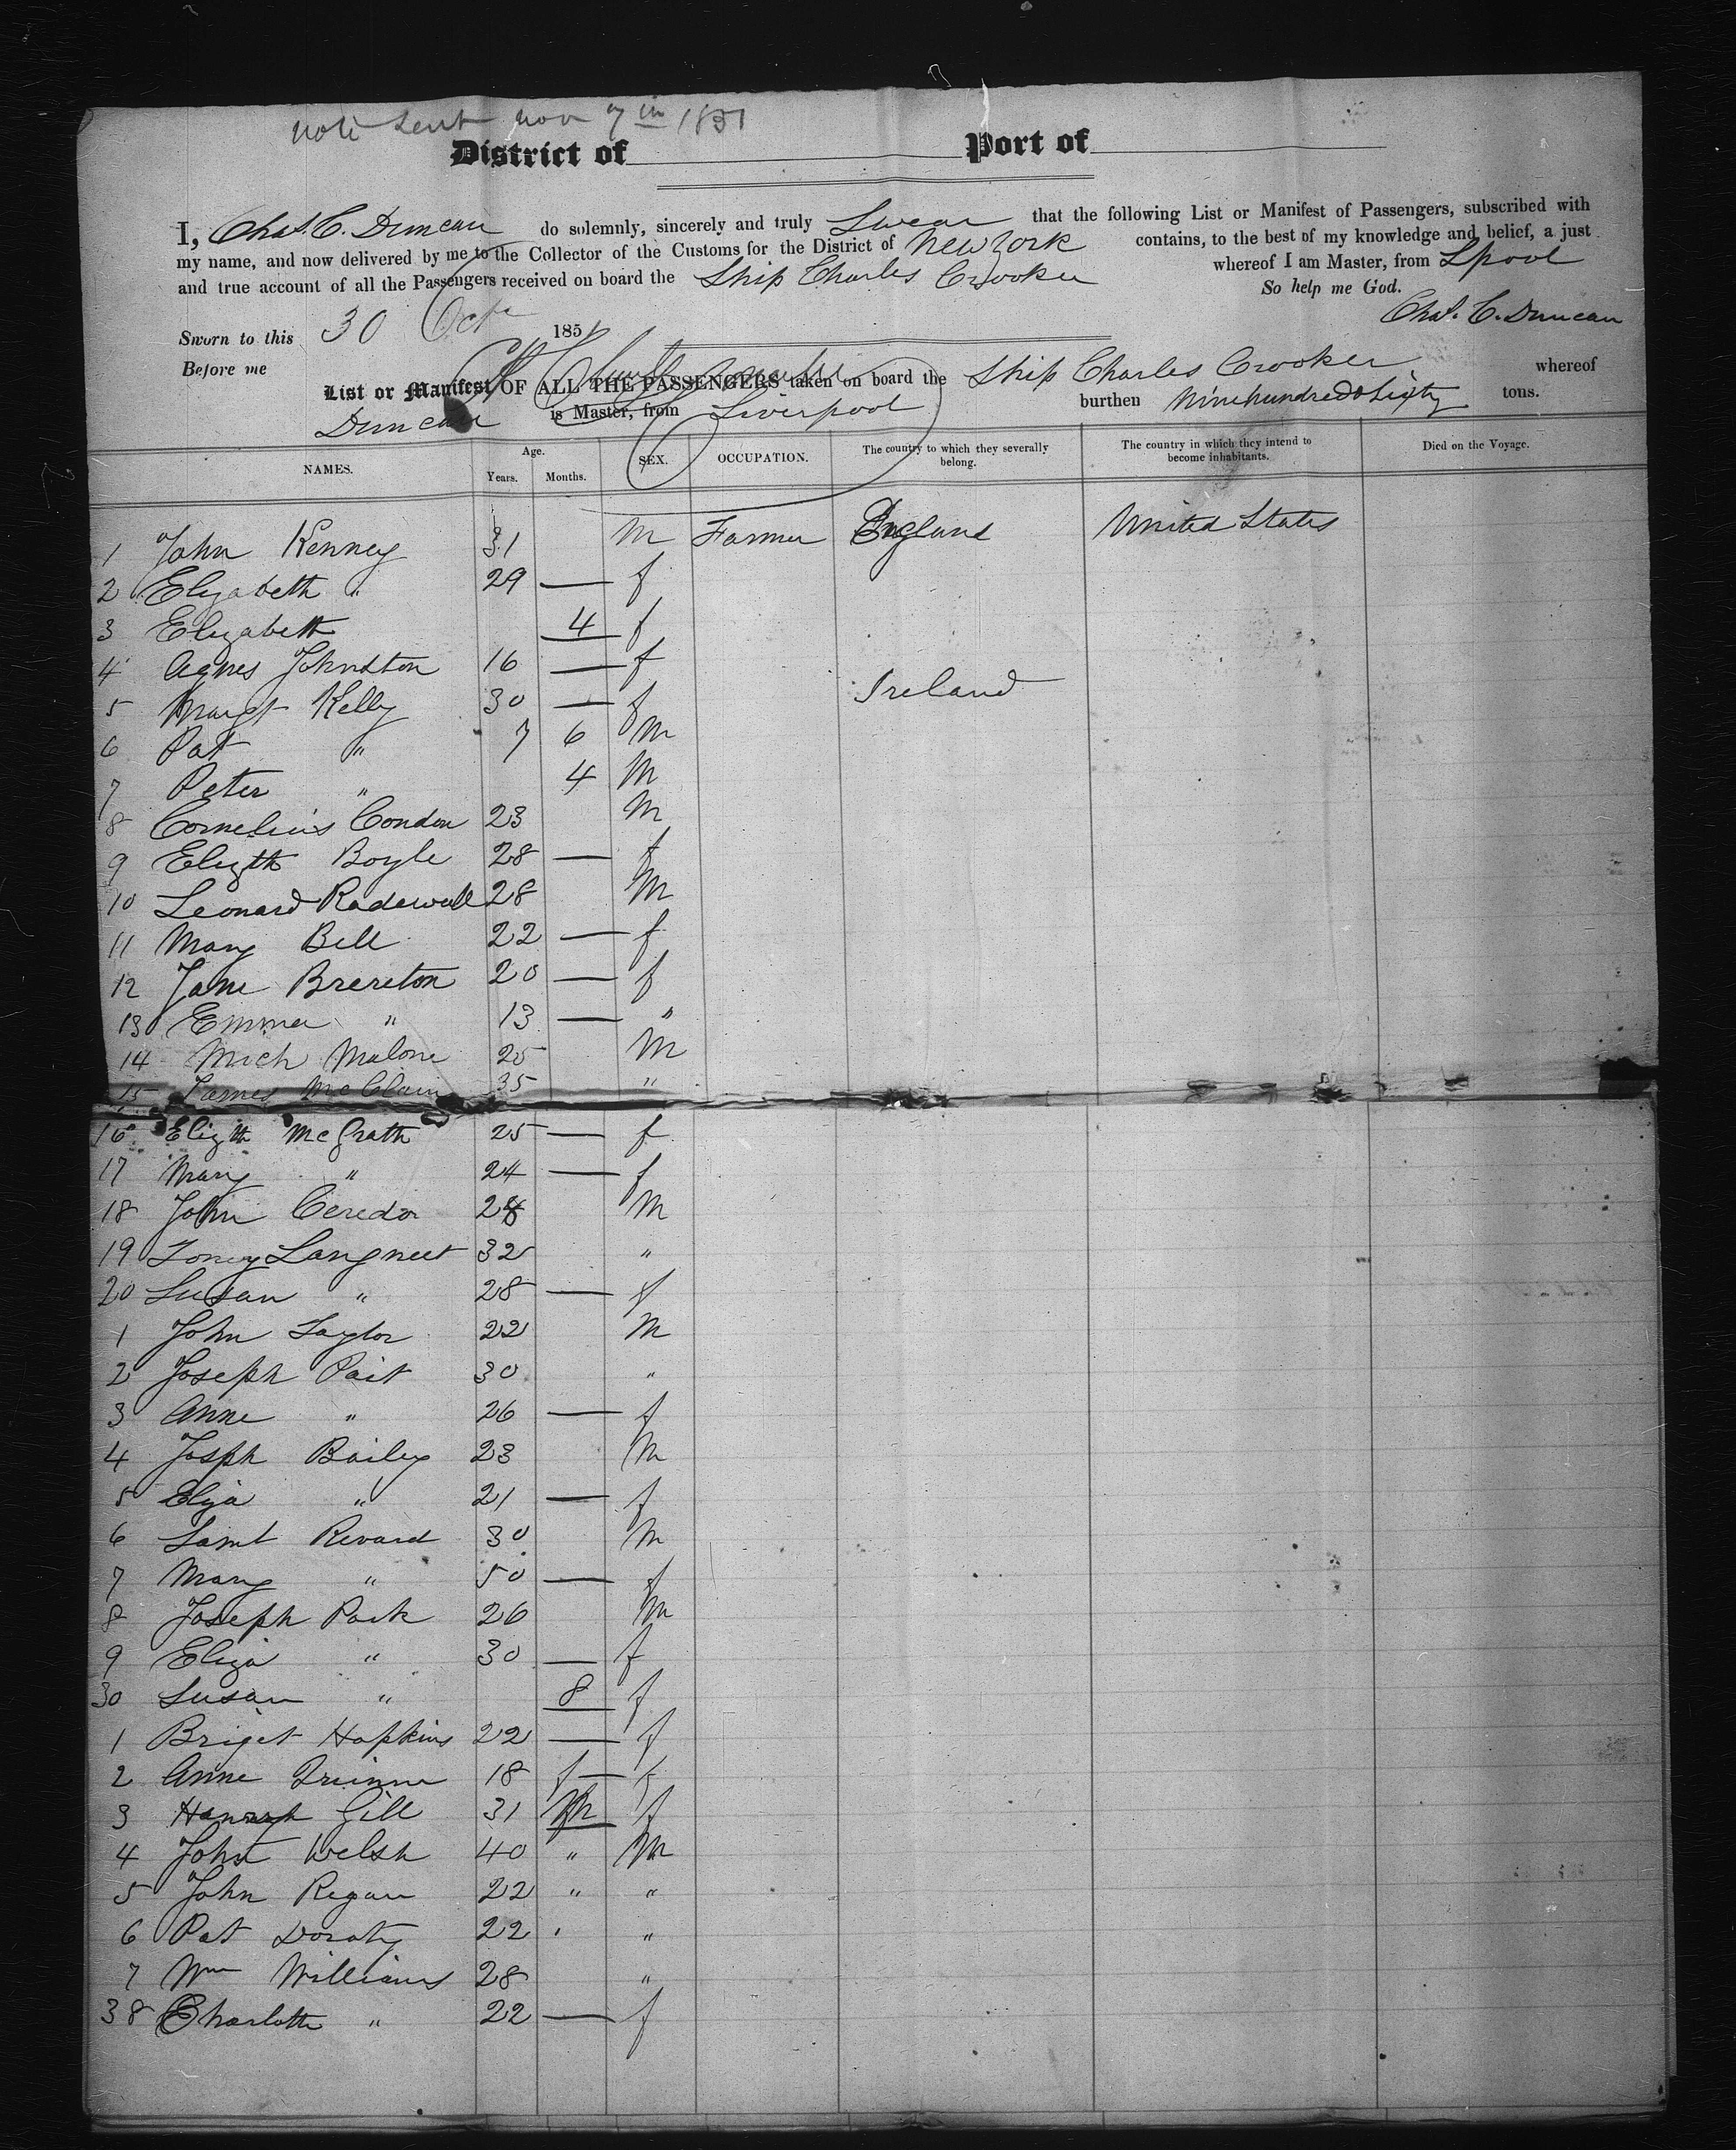 note sent nov 7th 1851
District of Port of
I, Chas. C. Duncan do solemnly, sincerely and truly Swear that the following List or Manifest of Passengers, subscribed with
my name, and now delivered by me to the Collector of the Customs for the District of New York contains, to the best of my knowledge and belief, a just
and true account of all the Passengers received on board the Ship Charles Crooker whereof I am Master, from Lpool
So help me God.
Sworn to this 30 Oct 1851 Chas. C. Duncan
Before me
List or Manifest OF ALL THE PASSENGERS taken on board the Ship Charles Crooker whereof
Duncan is Master, from Liverpool burthen Nine hundred & Sixty tons.
NAMES. Age. Years. Months. SEX. OCCUPATION. The country to which they severally belong. The country in which they intend to become inhabitants. Died on the Voyage.
1 John Kenney 31 M Farmer England United States
2 Elizabeth " 29 — f
3 Elizabeth 4 f
4 Agnes Johnston 16 — f
5 Margt Kelly 30 — f Ireland
6 Pat " 7 6 M
7 Peter " 4 M
8 Cornelius Condon 23 M
9 Elizth Boyle 28 — f
10 Leonard Radewall 28 M
11 Mary Bell 22 — f
12 Jane Brereton 20 — f
13 Emma " 13 — "
14 Mich Malone 25 M
15 James McClain 35 "
16 Elizth McGrath 25 — f
17 Mary " 24 — f
18 John Ceredon 28 M
19 Langneet 32 "
20 Susan " 28 — f
1 John Taylor 22 M
2 Joseph Pait 30 "
3 Anne " 26 — f
4 Josph Bailey 23 M
5 Eliza " 21 — f
6 Saml Revard 30 M
7 Mary " 50 — f
8 Joseph Park 26 M
9 Eliza " 30 — f
30 Susan " 8 f
1 Briget Hopkins 22 — f
2 Anne Quinne 18 f — f
3 Hannah Gill 31 f
4 John Welsh 40 " M
5 John Regan 22 " "
6 Pat Doraty 22 ' "
7 Wm Williams 28 "
38 Charlotte " 22 — f